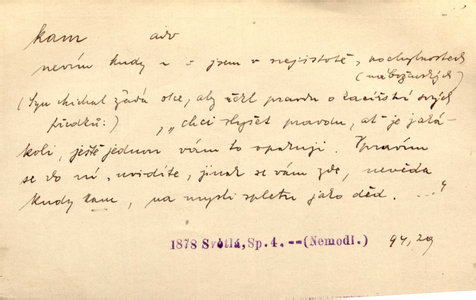 kam adv
nevím kudy n - jsem v nejistotě, pochybnostech
(náboženských)
(Syn Michal žádá otce, aby řekl pravdu o kacířství svých
předků:) „chci slyšet pravdu, ať je jaká-
koli, ještě jednou vám to opakuji. Upravím
se do ní, uvidíte, jinak se vám zde, nevěda
kudy kam, na mysli spletu jako děd. ..."
1878 Světlá, Sp. 4. --(Nemodl.) 94, 29